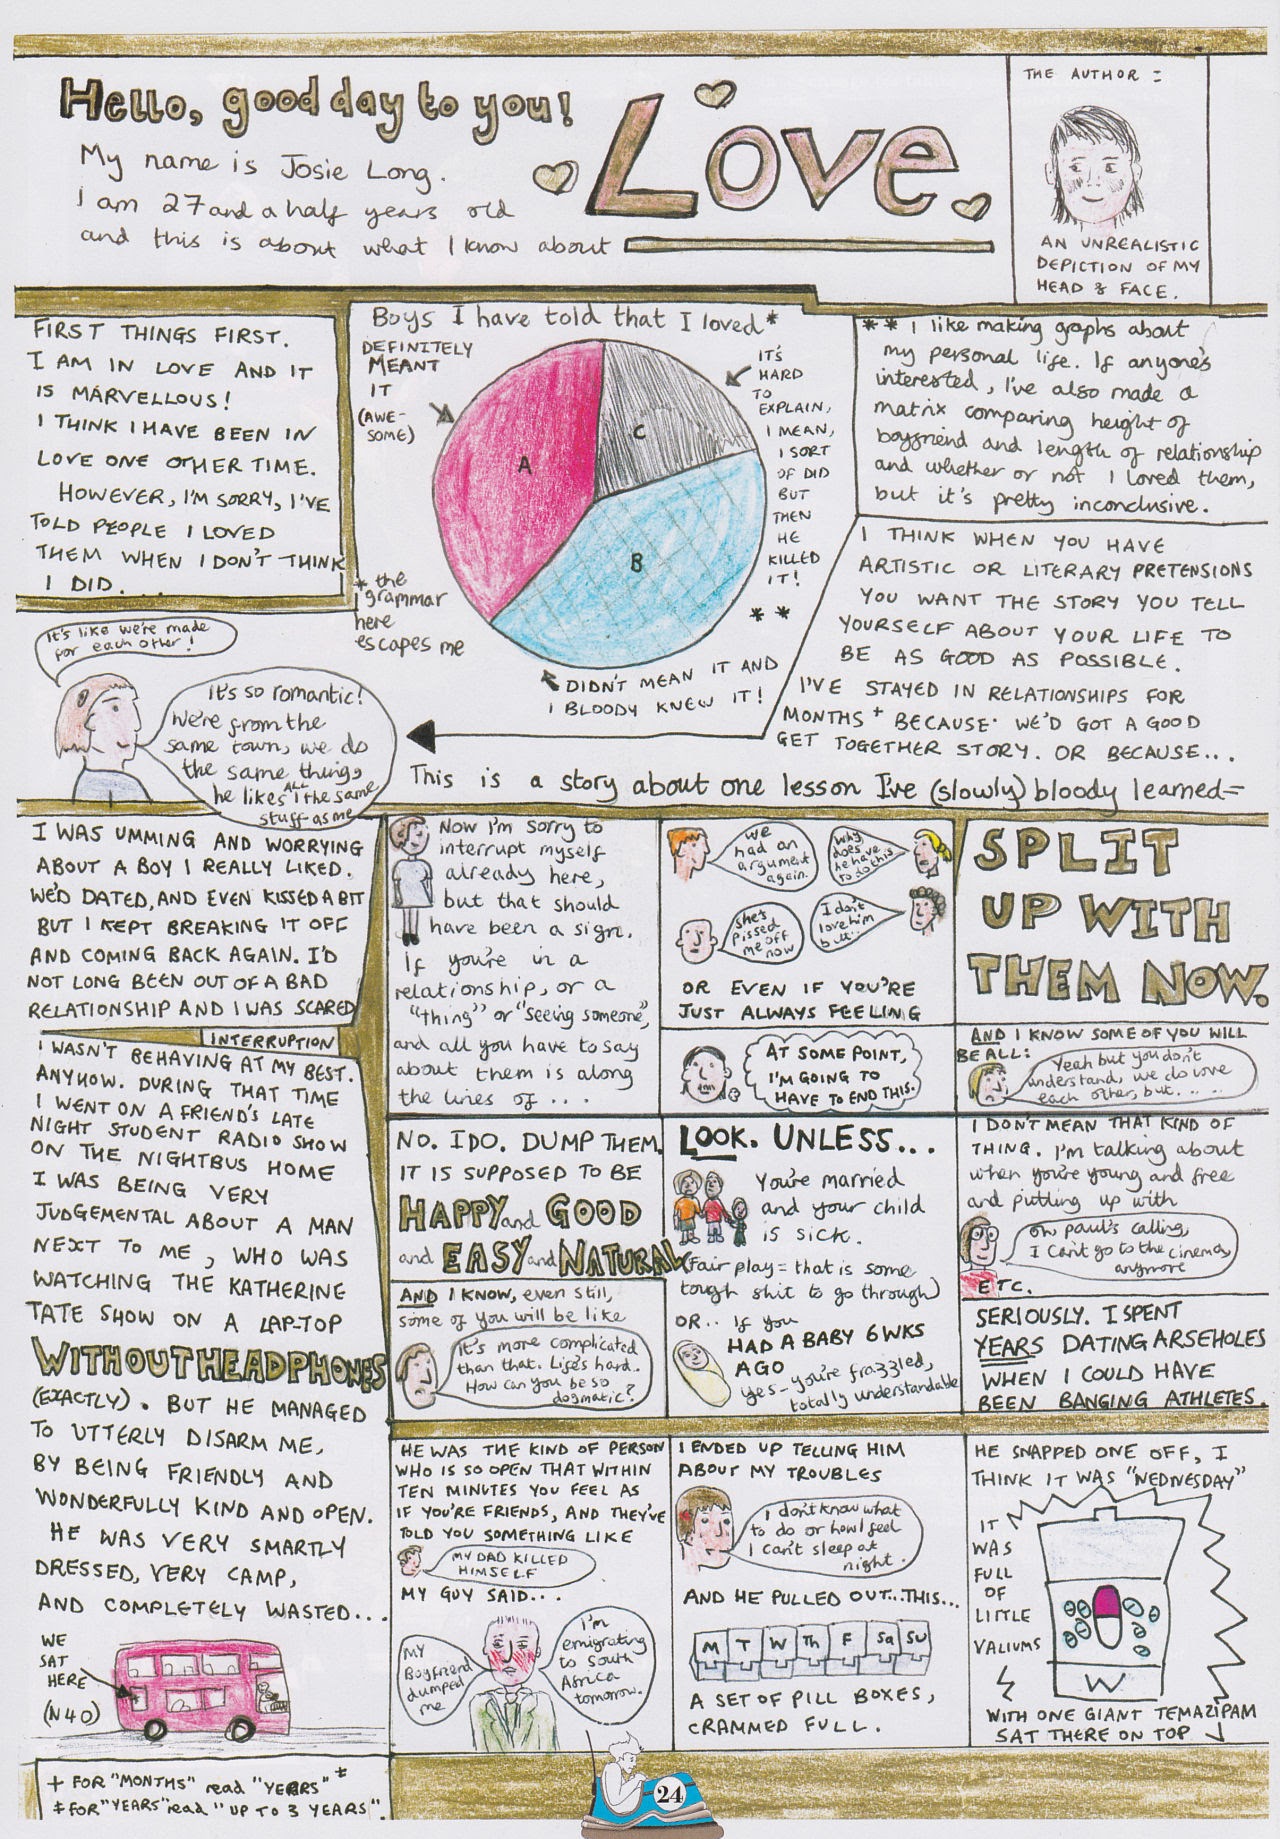 Hello, good day to you!
My name is Josie Long.
I am 27 and a half years old
and this is about what I know about
Love.
THE AUTHOR =
AN UNREALISTIC
DEPICTION OF MY
HEAD & FACE.
FIRST THINGS FIRST.
I AM IN LOVE AND IT
IS MARVELLOUS!
I THINK I HAVE BEEN IN
LOVE ONE OTHER TIME.
HOWEVER, I'M SORRY, I'VE
TOLD PEOPLE I LOVED
THEM WHEN I DON'T THINK
I DID. . .
Boys I have told that I loved *
DEFINITELY
MEANT
IT
(AWE-
SOME)
A
C
B
IT'S
HARD
TO
EXPLAIN,
I MEAN,
I SORT
OF DID
BUT
THEN
HE
KILLED
IT!
* *
* the
grammar
here
escapes me
DIDN'T MEAN IT AND
I BLOODY KNEW IT!
** I like making graphs about
my personal life. If anyone's
interested, I've also made a
matrix comparing height of
boyfriend and length of relationship
and whether or not I loved them,
but it's pretty inconclusive.
I THINK WHEN YOU HAVE
ARTISTIC OR LITERARY PRETENSIONS
YOU WANT THE STORY YOU TELL
YOURSELF ABOUT YOUR LIFE TO
BE AS GOOD AS POSSIBLE.
I'VE STAYED IN RELATIONSHIPS FOR
MONTHS + BECAUSE WE'D GOT A GOOD
GET TOGETHER STORY. OR BECAUSE...
It's like we're made
for each other!
It's so romantic!
We're from the
same town, we do
the same things,
he likes ALL the same
stuff as me
This is a story about one lesson I've (slowly) bloody learned=
I WAS UMMING AND WORRYING
ABOUT A BOY I REALLY LIKED.
WE'D DATED, AND EVEN KISSED A BIT
BUT I KEPT BREAKING IT OFF
AND COMING BACK AGAIN. I'D
NOT LONG BEEN OUT OF A BAD
RELATIONSHIP AND I WAS SCARED
INTERRUPTION
Now I'm sorry to
interrupt myself
already here,
but that should
have been a sign.
If you're in a
relationship, or a
"thing" or "seeing someone",
and all you have to say
about them is along
the lines of ...
we
had an
argument
again.
Why
does
he have
to do this
She's
pissed
me off
now
I don't
love him
but...
OR EVEN IF YOU'RE
JUST ALWAYS FEELING
AT SOME POINT,
I'M GOING TO
HAVE TO END THIS.
SPLIT
UP WITH
THEM NOW.
AND I KNOW SOME OF YOU WILL
BE ALL:
Yeah but you don't
understand, we do love
each other, but.....
NO. I DO. DUMP THEM.
IT IS SUPPOSED TO BE
HAPPY and GOOD
and EASY and NATURAL
AND I KNOW, even still,
some of you will be like
It's more complicated
than that. Life's hard.
How can you be so
dogmatic?
LOOK. UNLESS...
You're married
and your child
is sick.
(Fair play = that is some
tough shit to go through)
OR.. If you
HAD A BABY 6 WKS
AGO
yes - you're frazzled,
totally understandable
I DON'T MEAN THAT KIND OF
THING. I'm talking about
when you're young and free
and putting up with
oh Paul's calling,
I can't go to the cinema
anymore
ETC.
SERIOUSLY. I SPENT
YEARS DATING ARSEHOLES
WHEN I COULD HAVE
BEEN BANGING ATHLETES.
I WASN'T BEHAVING AT MY BEST.
ANYHOW. DURING THAT TIME
I WENT ON A FRIEND'S LATE
NIGHT STUDENT RADIO SHOW
ON THE NIGHTBUS HOME
I WAS BEING VERY
JUDGEMENTAL ABOUT A MAN
NEXT TO ME, WHO WAS
WATCHING THE KATHERINE
TATE SHOW ON A LAP-TOP
WITHOUT HEADPHONES
(EXACTLY). BUT HE MANAGED
TO UTTERLY DISARM ME,
BY BEING FRIENDLY AND
WONDERFULLY KIND AND OPEN.
HE WAS VERY SMARTLY
DRESSED, VERY CAMP,
AND COMPLETELY WASTED...
WE
SAT
HERE
(N40)
HE WAS THE KIND OF PERSON
WHO IS SO OPEN THAT WITHIN
TEN MINUTES YOU FEEL AS
IF YOU'RE FRIENDS, AND THEY'VE
TOLD YOU SOMETHING LIKE
MY DAD KILLED
HIMSELF
MY GUY SAID...
MY
Boyfriend
dumped
me
I'm
emigrating
to South
Africa
tomorrow.
I ENDED UP TELLING HIM
ABOUT MY TROUBLES
I don't know what
to do or how I feel
I can't sleep at
night.
AND HE PULLED OUT...THIS...
M T W Th F Sa Su
A SET OF PILL BOXES,
CRAMMED FULL.
HE SNAPPED ONE OFF, I
THINK IT WAS "WEDNESDAY"
IT
WAS
FULL
OF
LITTLE
VALIUMS
W
WITH ONE GIANT TEMAZIPAM
SAT THERE ON TOP
+ FOR "MONTHS" read "YEARS" ‡
‡ FOR "YEARS" read "UP TO 3 YEARS".
24